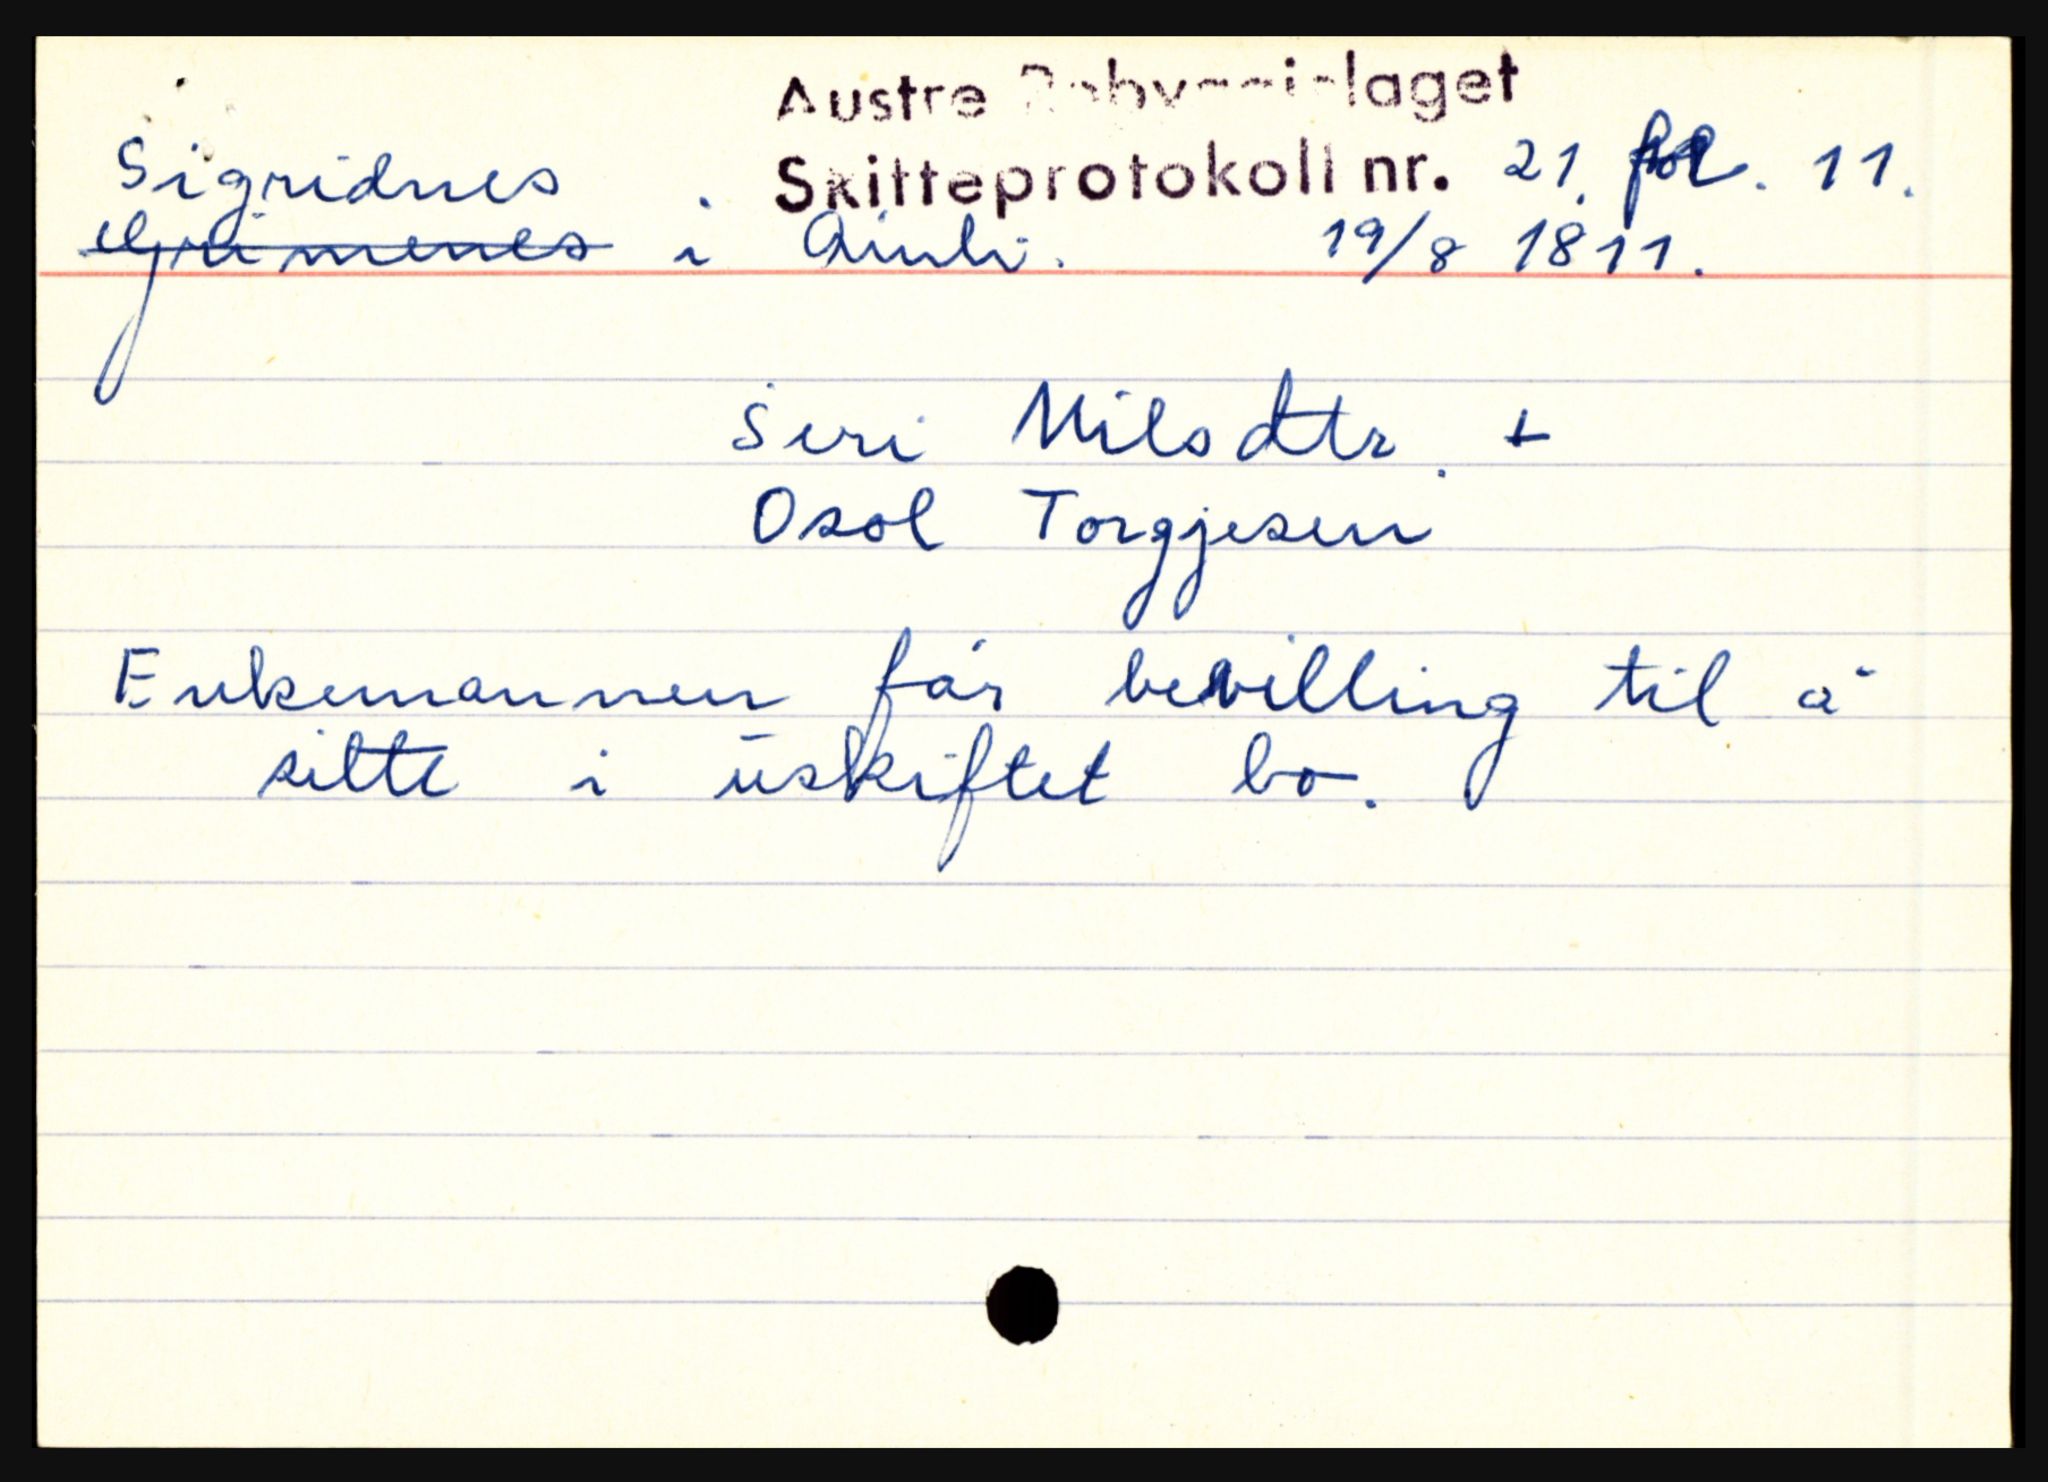 Austre Robyggjelaget
Skifteprotokoll nr. 21. fol. 11.
Sigridnes
Grimenes i Åmli. 19/8 1811.
Siri Nilsdtr. +
Osol Torgjesen
Enkemannen får bevilling til å
sitte i uskiftet bo.